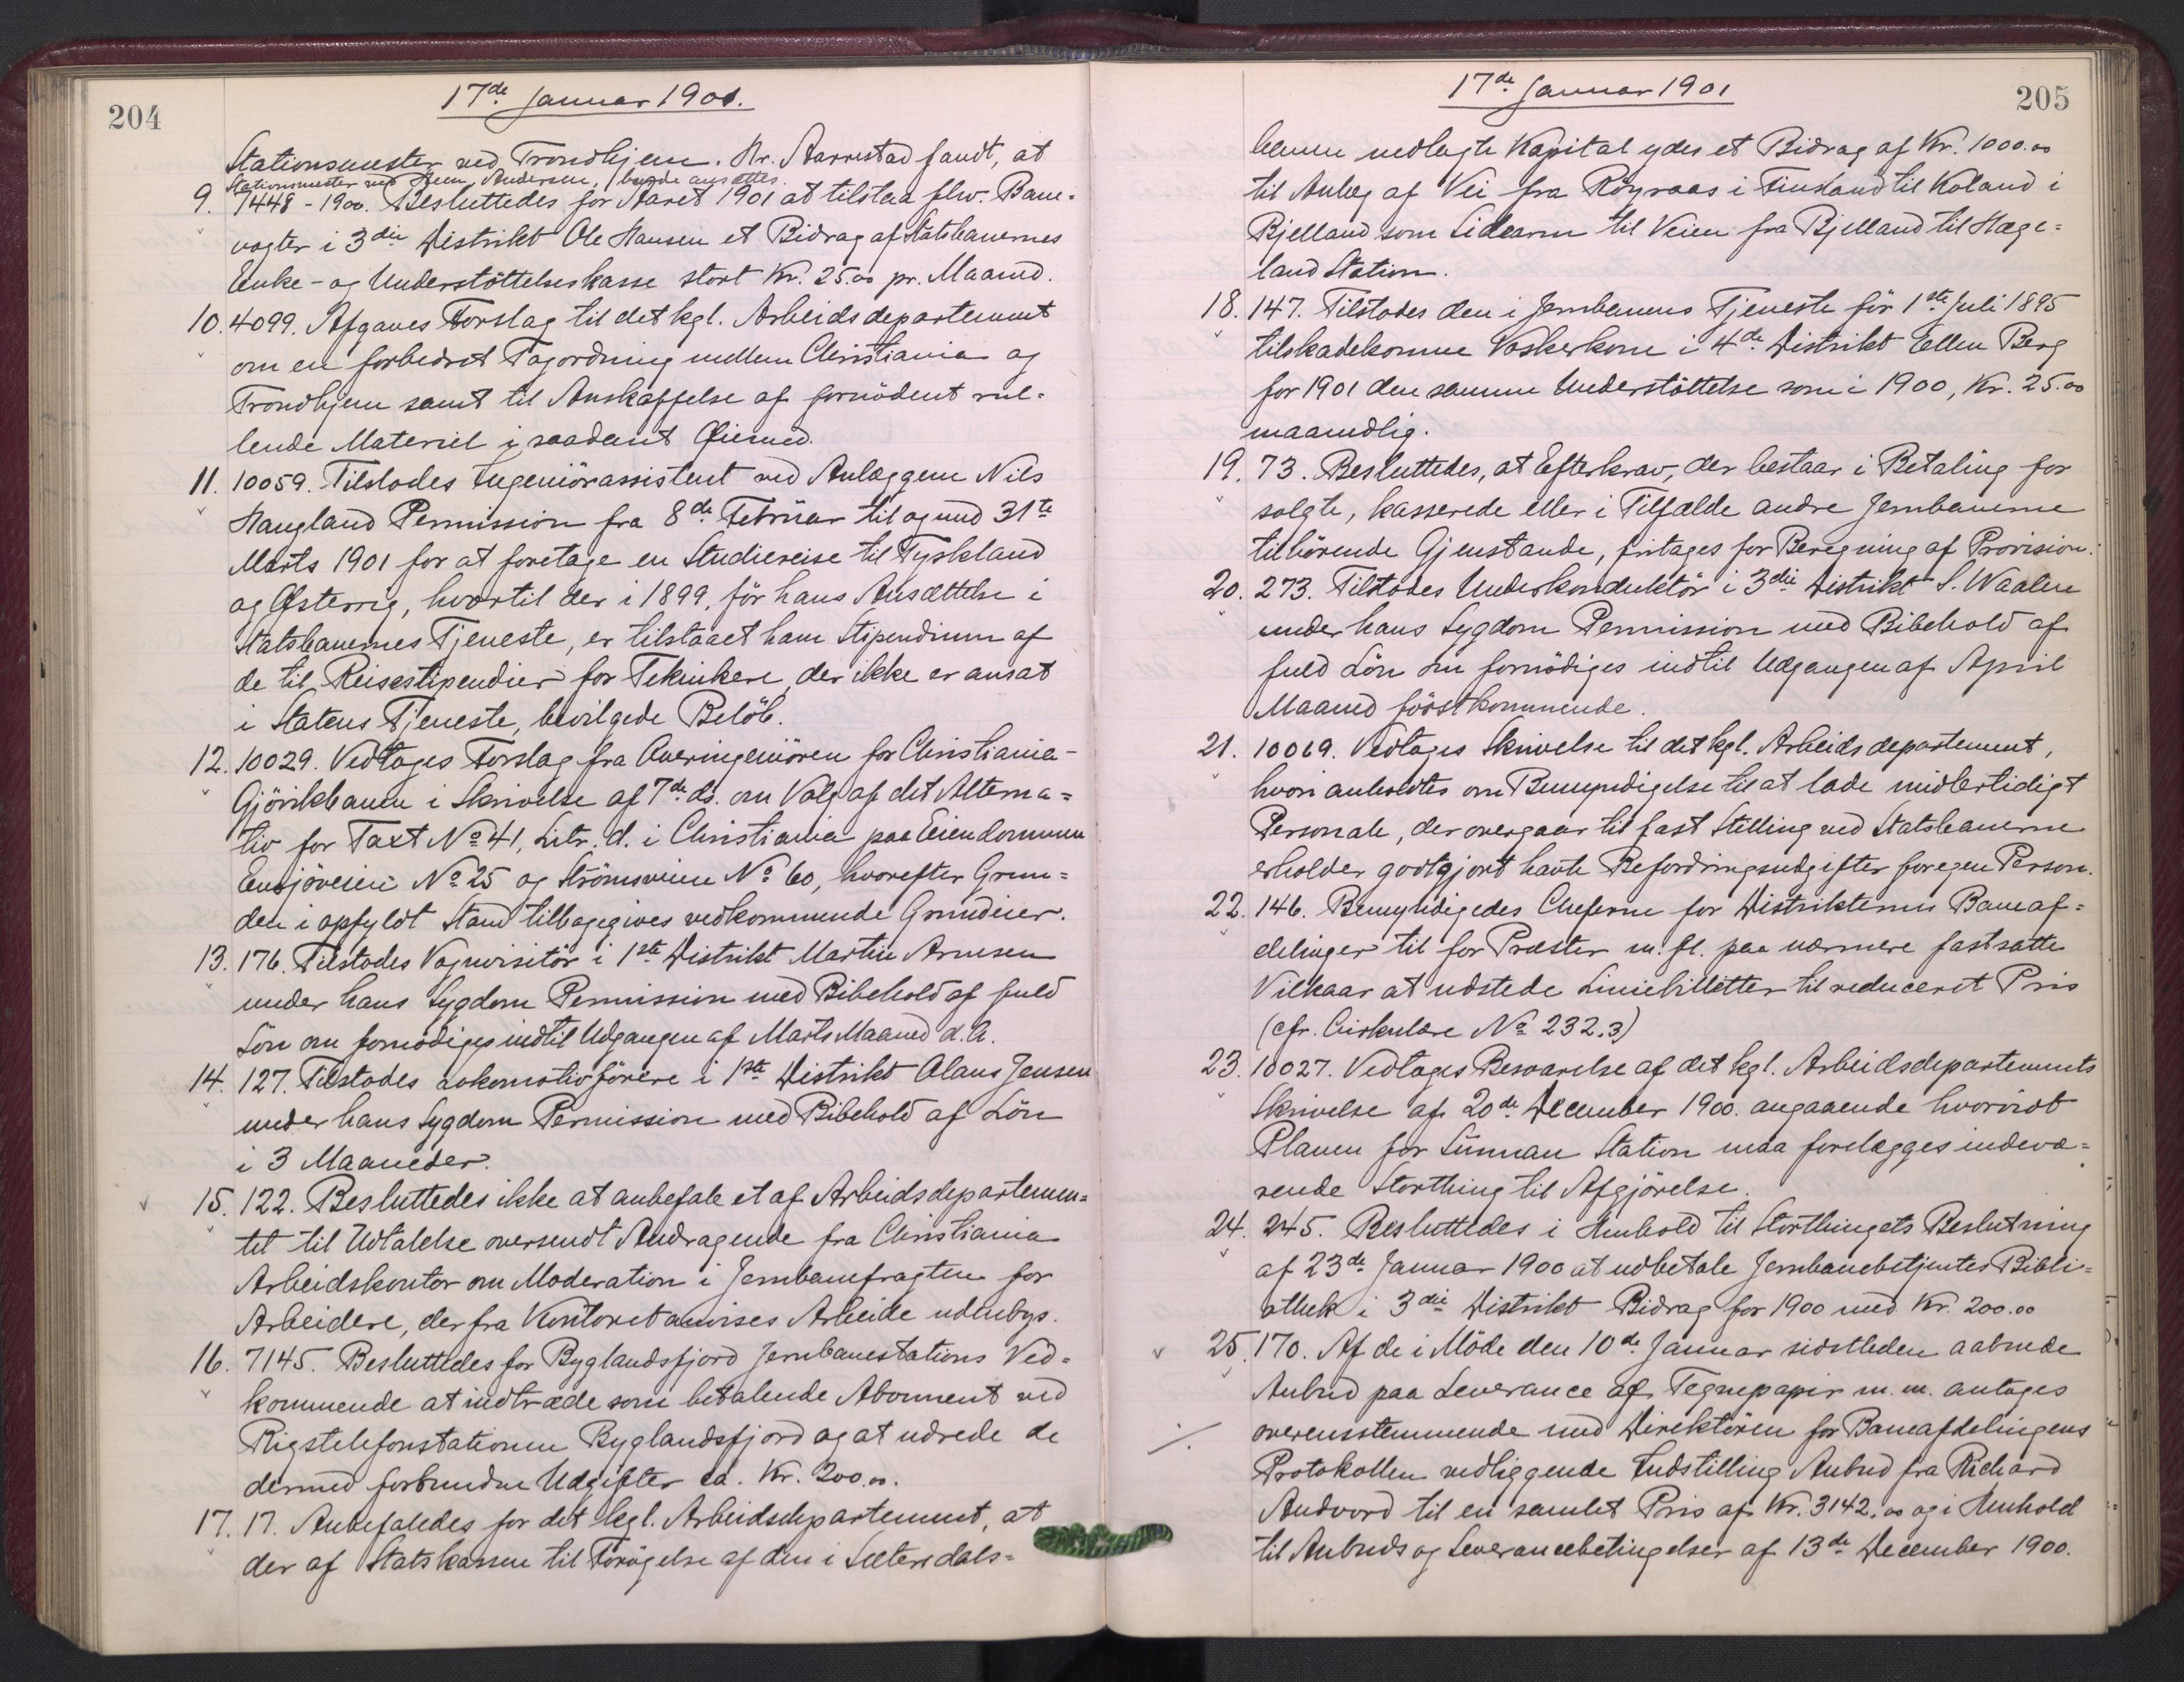 204
17de Januar 1901.
Stationsmester ved Trondhjem. Hr. Aarrestad fandt, at
Stationsmester ved Steen, Andersen, burde ansættes.
9. 7448-1900. Besluttedes for Aaret 1901 at tilstaa flw. Bane-
vogter i 3die Distrikt Ole Hansen et Bidrag af Statsbanernes
Enke- og Understöttelseskasse stort Kr. 25.00 pr. Maaned.
10. 4099. Afgaves Forslag til det kgl. Arbeidsdepartement
om en forbedret Togordning mellem Christiania og
Trondhjem samt til Anskaffelse af fornödent rul-
lende Materiel i saadant Øiemed.
11. 10059. Tilstodes Ingeniörassistent ved Anlæggene Nils
Haugland Permission fra 8de Februar til og med 31te
Marts 1901 for at foretage en Studiereise til Tyskland
og Østerrig, hvortil der i 1899, för hans Ansættelse i
Statsbanernes Tjeneste, er tilstaaet ham Stipendium af
de til Reisestipendier for Teknikere, der ikke er ansat
i Statens Tjeneste, bevilgede Belöb.
12. 10029. Vedtoges Forslag fra Overingeniören for Christiania-
Gjövikbanen i Skrivelse af 7de ds. om Valg af det Alterna=
tiv for Taxt No 41, Litr. d. i Christiania paa Eiendommen
Ensjöveien No 25 og Strömsveien No 60, hvorefter Grun=
den i opfyldt Stand tilbagegives vedkommende Grundeier.
13. 176. Tilstodes Vognvisitör i 1ste Distrikt Martin Arnesen
under hans Sygdom Permission med Bibehold af fuld
Lön om fornödiges indtil Udgangen af Marts Maaned d.A.
14. 127. Tilstodes Lokomotivförere i 1ste Distrikt Olaus Jensen
under hans Sygdom Permission med Bibehold af Lön
i 3 Maaneder.
15. 122. Besluttedes ikke at anbefale et af Arbeidsdepartemen=
tet til Udtalelse oversendt Andragende fra Christiania
Arbeidskontor om Moderation i Jernbanefragten for
Arbeidere, der fra Kontoret anvises Arbeide udenbys.
16. 7145. Besluttedes for Byglandsfjord Jernbanestations Ved=
kommende at indtræde som betalende Abonnent ved
Rigstelefonstationen Byglandsfjord og at udrede de
dermed forbundne Udgifter ca. Kr. 200.00.
17. 17. Anbefaledes for det kgl. Arbeidsdepartement, at
der af Statskassen til Forögelse af den i Sætersdals=
205
17de Januar 1901
banen nedlagte Kapital ydes et Bidrag af Kr. 1000.00
til Anlæg af Vei fra Röyraas i Finsland til Koland i
Bjelland som Sidearm til Veien fra Bjelland til Hæge=
land Station.
18. 147. Tilstodes den i Jernbanens Tjeneste för 1ste Juli 1895
tilskadekomne Vaskerkone i 4de Distrikt Ellen Berg
for 1901 den samme Understöttelse som i 1900, Kr. 25.00
maanedlig.
19. 73. Besluttedes, at Efterkrav, der bestaar i Betaling for
solgte, kasserede eller i Tilfælde andre Jernbanerne
tilhörende Gjenstande, fritages for Beregning af Provision.
20. 273. Tilstodes Underkonduktör i 3die Distrikt S. Waalen
under hans Sygdom Permission med Bibehold af
fuld Lön om fornödiges indtil Udgangen af April
Maaned förstkommende.
21. 10069. Vedtoges Skrivelse til det kgl. Arbeidsdepartement,
hvori anholdtes om Bemyndigelse til at lade midlertidigt
Personale, der overgaar til fast Stilling ved Statsbanerne
erholder godtgjort havte Befordringsudgifter for egen Person.
22. 146. Bemyndigedes Cheferne for Distrikternes Baneaf=
delinger til for Prester m.fl. paa nærmere fastsatte
Vilkaar at udstede Liniebilletter til reduceret Pris
(cfr. Cirkulære No 232.3)
23. 10027. Vedtoges Besvarelse af det kgl. Arbeidsdepartements
Skrivelse af 20de December 1900. angaaende hvorvidt
Planen for Sunnan Station maa forelægges indevæ=
rende Storthing til Afgjörelse.
24. 245. Besluttedes i Henhold til Storthingets Beslutning
af 23de Januar 1900 at udbetale Jernbanebetjentes Bibli=
othek i 3die Distrikt Bidrag for 1900 med Kr. 200.00
25. 170. Af de i Möde den 10de Januar sidstleden aabnede
Anbud paa Leverance af Tegnepapir m.m. antoges
overensstemmende med Direktören for Baneafdelingens
Protokollen vedliggende Indstilling Anbud fra Richard
Andvord til en samlet Pris af Kr. 3142.00 og i Henhold
til Anbuds og Leverancebetingelser af 13de December 1900.